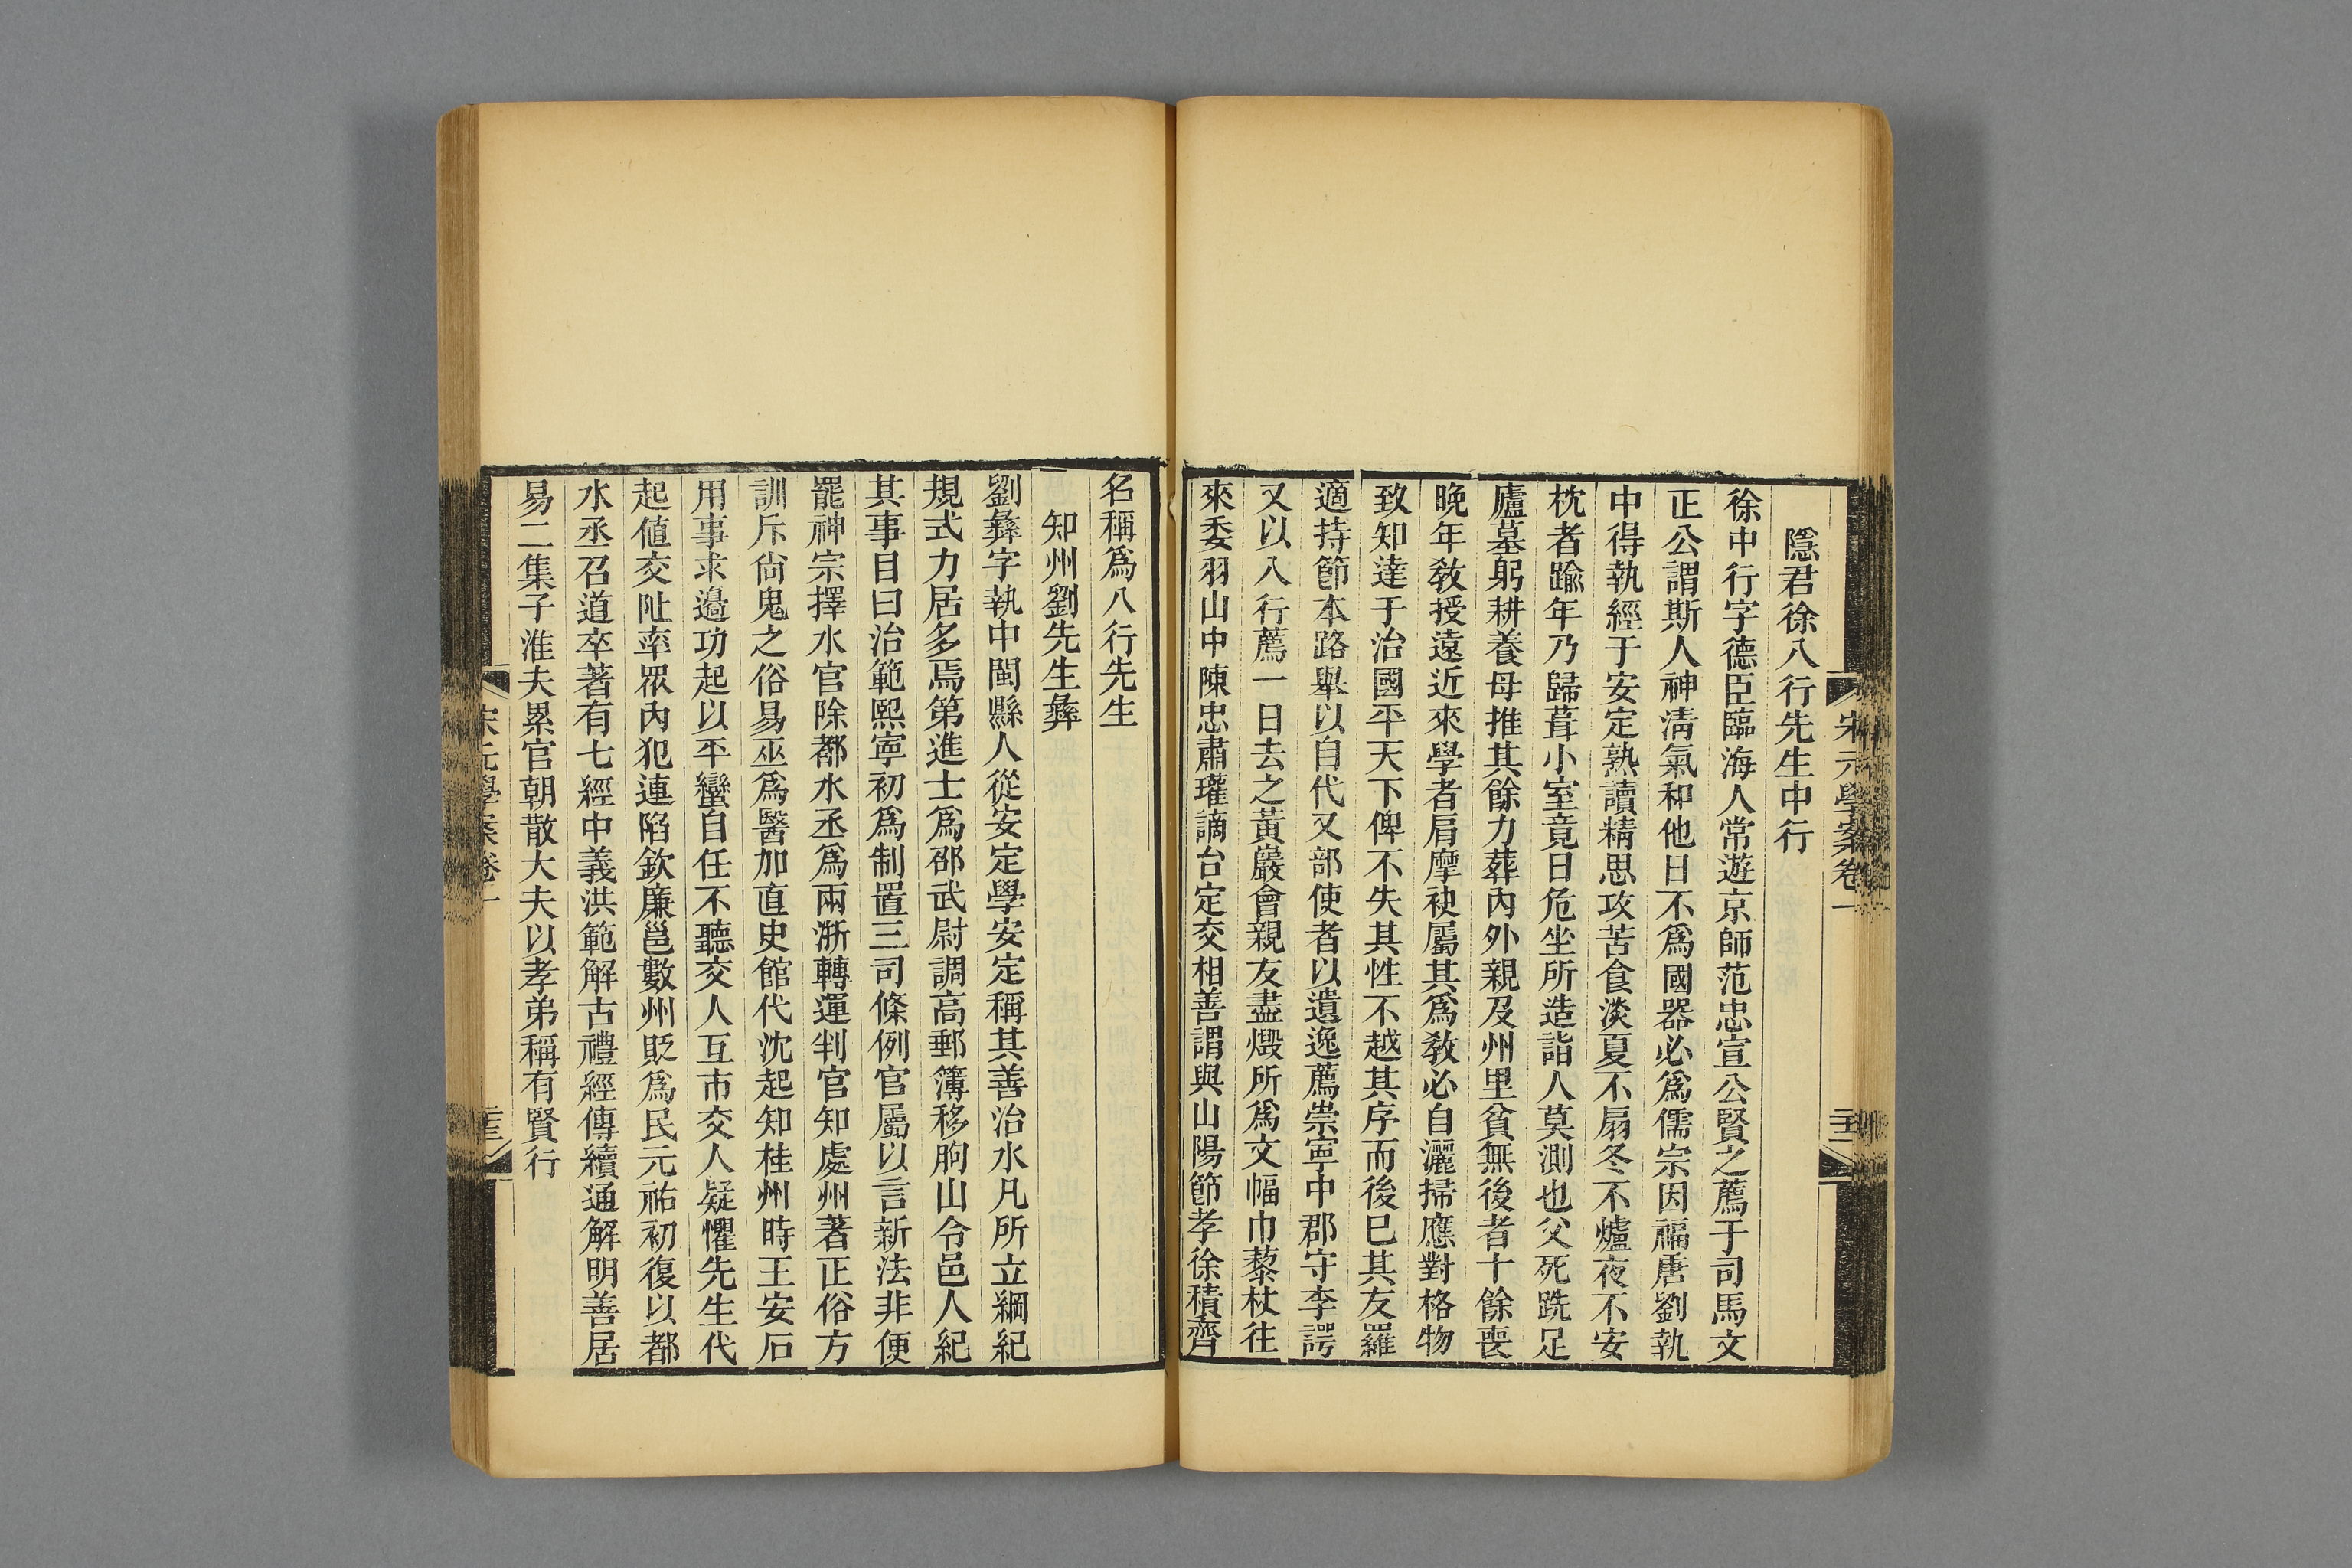 宋元學案卷一
隱君徐八行先生中行
徐中行字德臣臨海人常遊京師范忠宣公賢之薦于司馬文
正公謂斯人神清氣和他日不爲國器必爲儒宗因福唐劉執
中得執經于安定熟讀精思攻苦食淡夏不扇冬不爐夜不安
枕者踰年乃歸葺小室竟日危坐所造詣人莫測也父死跣足
廬墓躬耕養母推其餘力葬內外親及州里貧無後者十餘喪
晚年教授遠近來學者肩摩袂屬其爲教必自灑掃應對格物
致知達于治國平天下俾不失其性不越其序而後已其友羅
適持節本路舉以自代又部使者以遺逸薦崇寧中郡守李諤
又以八行薦一日去之黃巖會親友盡燬所爲文幅巾藜杖往
來委羽山中陳忠肅瓘謫台定交相善謂與山陽節孝徐積齊
名稱爲八行先生
知州劉先生彝
劉彝字執中閩縣人從安定學安定稱其善治水凡所立綱紀
規式力居多焉第進士爲邵武尉調高郵簿移朐山令邑人紀
其事目曰治範熙寧初爲制置三司條例官屬以言新法非便
罷神宗擇水官除都水丞爲兩浙轉運判官知處州著正俗方
訓斥尙鬼之俗易巫爲醫加直史館代沈起知桂州時王安石
用事求邊功起以平蠻自任不聽交人互市交人疑懼先生代
起值交阯率眾內犯連陷欽廉邕數州貶爲民元祐初復以都
水丞召道卒著有七經中義洪範解古禮經傳續通解明善居
易二集子淮夫累官朝散大夫以孝弟稱有賢行
宋元學案卷一